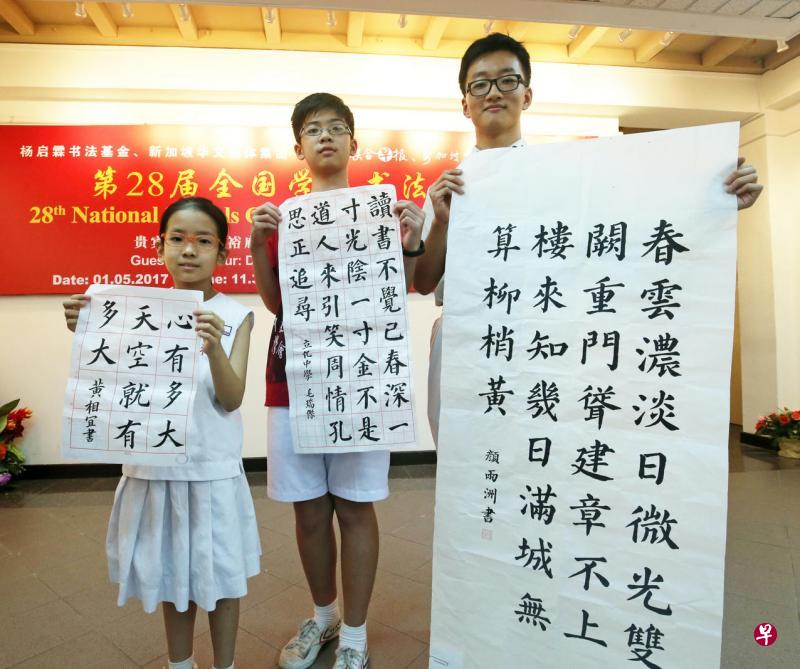 杨启霖书法基金、新加坡华文 体集团 合早报、新加坡
第28届全国学 书法
28th National ls C
贵宾
Gues ur: D
Date: 01.05.2017 me: 11.3
心有多大
天空就有
多大
黄相宜書
讀書不覺已春深一
寸光陰一寸金不是
道人來引笑周情孔
思正追尋
立化中學 毛瑞傑
春雲濃淡日微光雙
闕重門聳建章不上
樓來知幾日滿城無
算柳梢黃
顏雨洲書
早